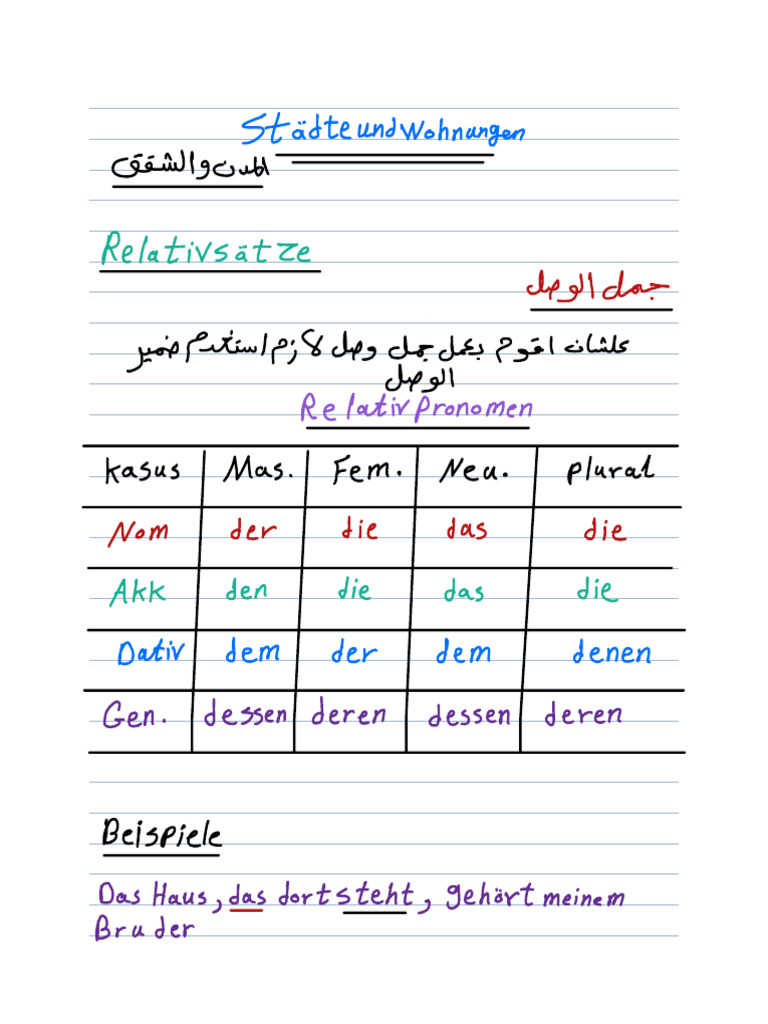 Städte und Wohnungen
المدن والشقق
Relativsätze
جمل الوصل
علشان اقوم بعمل جمل وصل لازم استخدم ضمير
الوصل
Relativpronomen
Kasus Mas. Fem. Neu. plural
Nom der die das die
Akk den die das die
Dativ dem der dem denen
Gen. dessen deren dessen deren
Beispiele
Das Haus, das dort steht, gehört meinem
Bruder